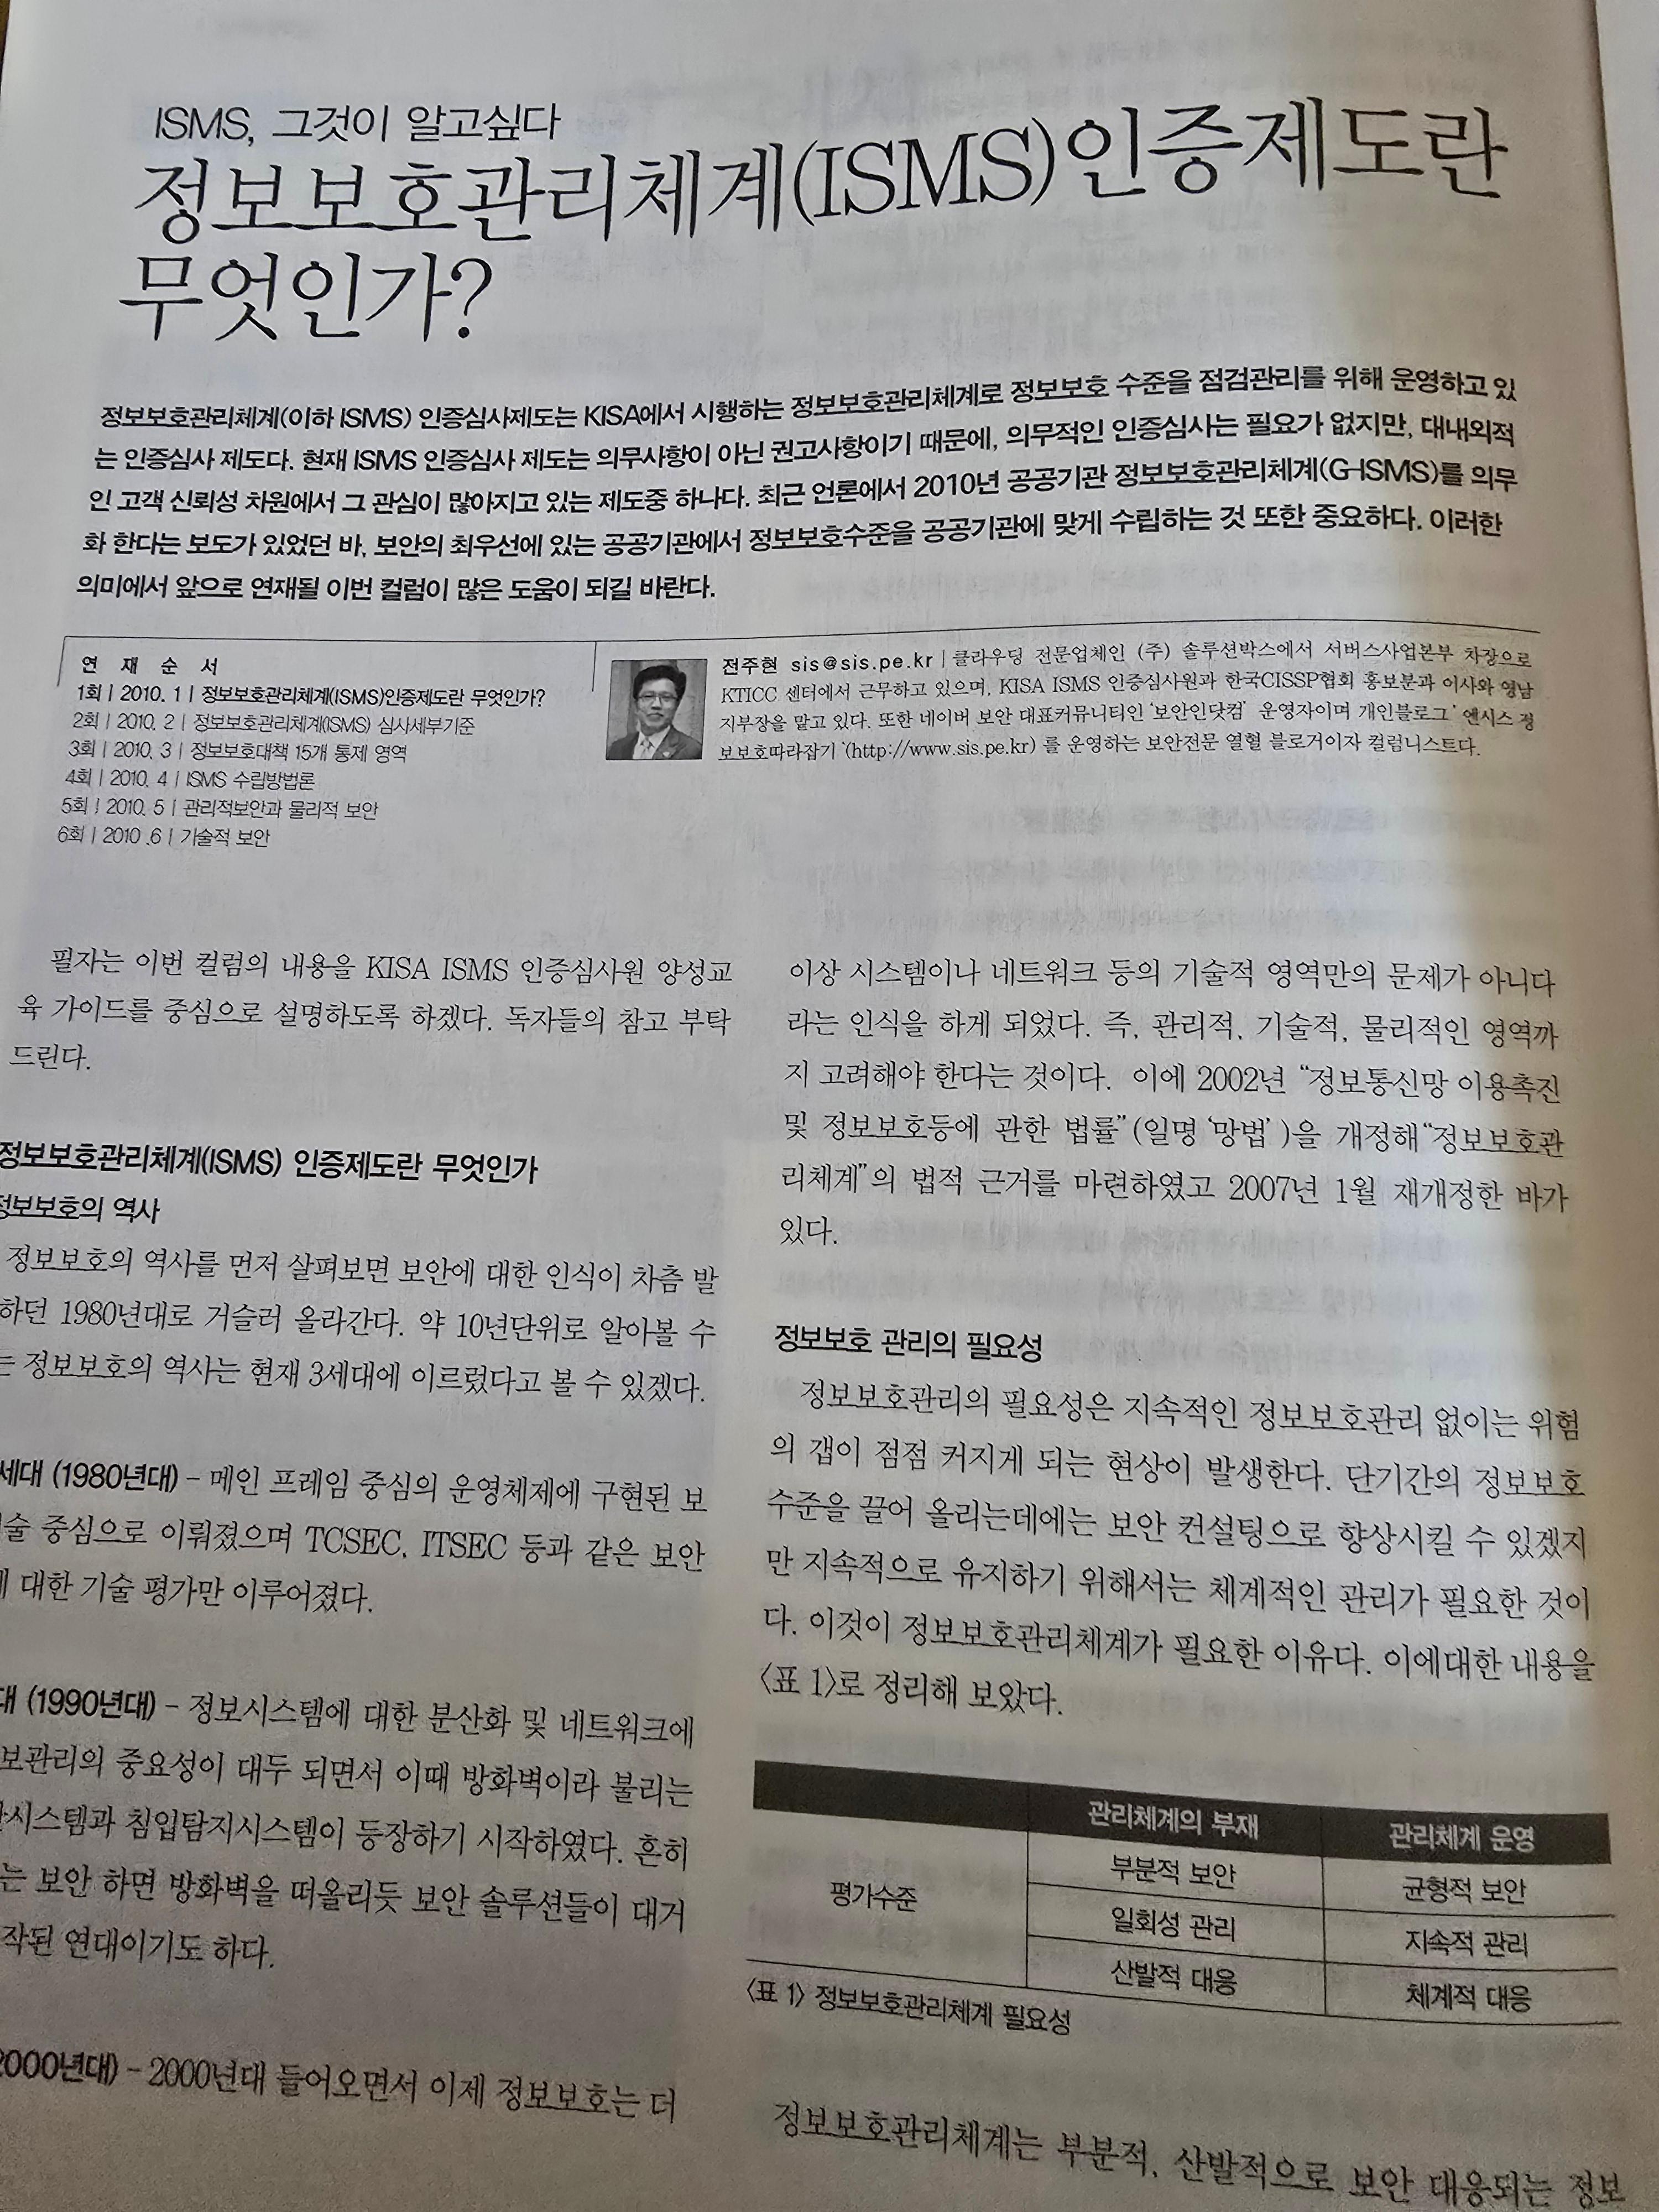 ISMS, 그것이 알고싶다
정보보호관리체계(ISMS)인증제도란
무엇인가?
정보보호관리체계(이하 ISMS) 인증심사제도는 KISA에서 시행하는 정보보호관리체계로 정보보호 수준을 점검관리를 위해 운영하고 있
는 인증심사 제도다. 현재 ISMS 인증심사 제도는 의무사항이 아닌 권고사항이기 때문에, 의무적인 인증심사는 필요가 없지만, 대내외적
인 고객 신뢰성 차원에서 그 관심이 많아지고 있는 제도중 하나다. 최근 언론에서 2010년 공공기관 정보보호관리체계(G-ISMS)를 의무
화 한다는 보도가 있었던 바, 보안의 최우선에 있는 공공기관에서 정보보호수준을 공공기관에 맞게 수립하는 것 또한 중요하다. 이러한
의미에서 앞으로 연재될 이번 컬럼이 많은 도움이 되길 바란다.
연 재 순 서
1회 | 2010. 1 | 정보보호관리체계(ISMS)인증제도란 무엇인가?
2회 | 2010. 2 | 정보보호관리체계(ISMS) 심사세부기준
3회 | 2010. 3 | 정보보호대책 15개 통제 영역
4회 | 2010. 4 | ISMS 수립방법론
5회 | 2010. 5 | 관리적보안과 물리적 보안
6회 | 2010 .6 | 기술적 보안
전주현 sis@sis.pe.kr | 클라우딩 전문업체인 (주) 솔루션박스에서 서버스사업본부 차장으로
KTICC 센터에서 근무하고 있으며, KISA ISMS 인증심사원과 한국CISSP협회 홍보분과 이사와 영남
지부장을 맡고 있다. 또한 네이버 보안 대표커뮤니티인 '보안인닷컴' 운영자이며 개인블로그 '엔시스 정
보보호따라잡기 '(http://www.sis.pe.kr) 를 운영하는 보안전문 열혈 블로거이자 컬럼니스트다.
필자는 이번 컬럼의 내용을 KISA ISMS 인증심사원 양성교
육 가이드를 중심으로 설명하도록 하겠다. 독자들의 참고 부탁
드린다.
정보보호관리체계(ISMS) 인증제도란 무엇인가
정보보호의 역사
정보보호의 역사를 먼저 살펴보면 보안에 대한 인식이 차츰 발
하던 1980년대로 거슬러 올라간다. 약 10년단위로 알아볼 수
는 정보보호의 역사는 현재 3세대에 이르렀다고 볼 수 있겠다.
세대 (1980년대) - 메인 프레임 중심의 운영체제에 구현된 보
술 중심으로 이뤄졌으며 TCSEC, ITSEC 등과 같은 보안
대한 기술 평가만 이루어졌다.
대 (1990년대) - 정보시스템에 대한 분산화 및 네트워크에
보관리의 중요성이 대두 되면서 이때 방화벽이라 불리는
시스템과 침입탐지시스템이 등장하기 시작하였다. 흔히
는 보안 하면 방화벽을 떠올리듯 보안 솔루션들이 대거
작된 연대이기도 하다.
2000년대) - 2000년대 들어오면서 이제 정보보호는 더
이상 시스템이나 네트워크 등의 기술적 영역만의 문제가 아니다
라는 인식을 하게 되었다. 즉, 관리적, 기술적, 물리적인 영역까
지 고려해야 한다는 것이다. 이에 2002년 "정보통신망 이용촉진
및 정보보호등에 관한 법률"(일명 '망법' )을 개정해"정보보호관
리체계"의 법적 근거를 마련하였고 2007년 1월 재개정한 바가
있다.
정보보호 관리의 필요성
정보보호관리의 필요성은 지속적인 정보보호관리 없이는 위험
의 갭이 점점 커지게 되는 현상이 발생한다. 단기간의 정보보호
수준을 끌어 올리는데에는 보안 컨설팅으로 향상시킬 수 있겠지
만 지속적으로 유지하기 위해서는 체계적인 관리가 필요한 것이
다. 이것이 정보보호관리체계가 필요한 이유다. 이에대한 내용을
〈표 1〉로 정리해 보았다.
관리체계의 부재 관리체계 운영
평가수준 부분적 보안 균형적 보안
일회성 관리 지속적 관리
산발적 대응 체계적 대응
〈표 1〉 정보보호관리체계 필요성
정보보호관리체계는 부분적, 산발적으로 보안 대응되는 정보